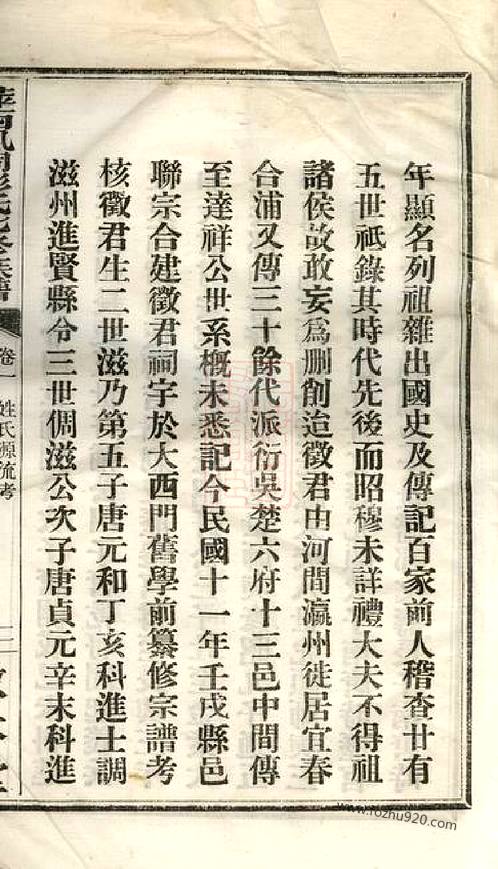 年顯名列祖雜出國史及傳記百家前人稽查廿有
五世祇錄其時代先後而昭穆未詳禮大夫不得祖
諸侯故敢妄爲删削迨徵君由河間瀛州徙居宜春
合浦又傳三十餘代派衍吳楚六府十三邑中間傳
至達祥公世系概未悉記今民國十一年壬戌縣邑
聯宗合建徵君祠宇於大西門舊學前纂修宗譜考
核徵君生二世滋乃第五子唐元和丁亥科進士調
滋州進賢縣令三世倜滋公次子唐貞元辛未科進
卷一
姓氏源流考
www.fozhu920.com